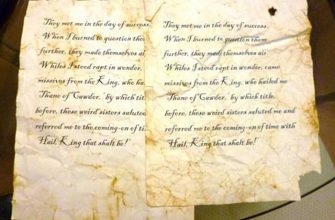 They met me in the day of success,
When I burned to question them
further, they made themselves air
Whiles I stood rapt in wonder, came
missives from the King, who ha
Thane of Cawdor, by which title,
before, these weird sisters saluted
referred me to the coming-on of tim
Hail, King that shalt be!
They met me in the day of success,
When I burned to question them
further, they made themselves air
Whiles I stood rapt in wonder, came
missives from the King, who hailed me
Thane of Cawdor, by which title,
before, these weird sisters saluted me and
referred me to the coming-on of time with
Hail, King that shalt be!